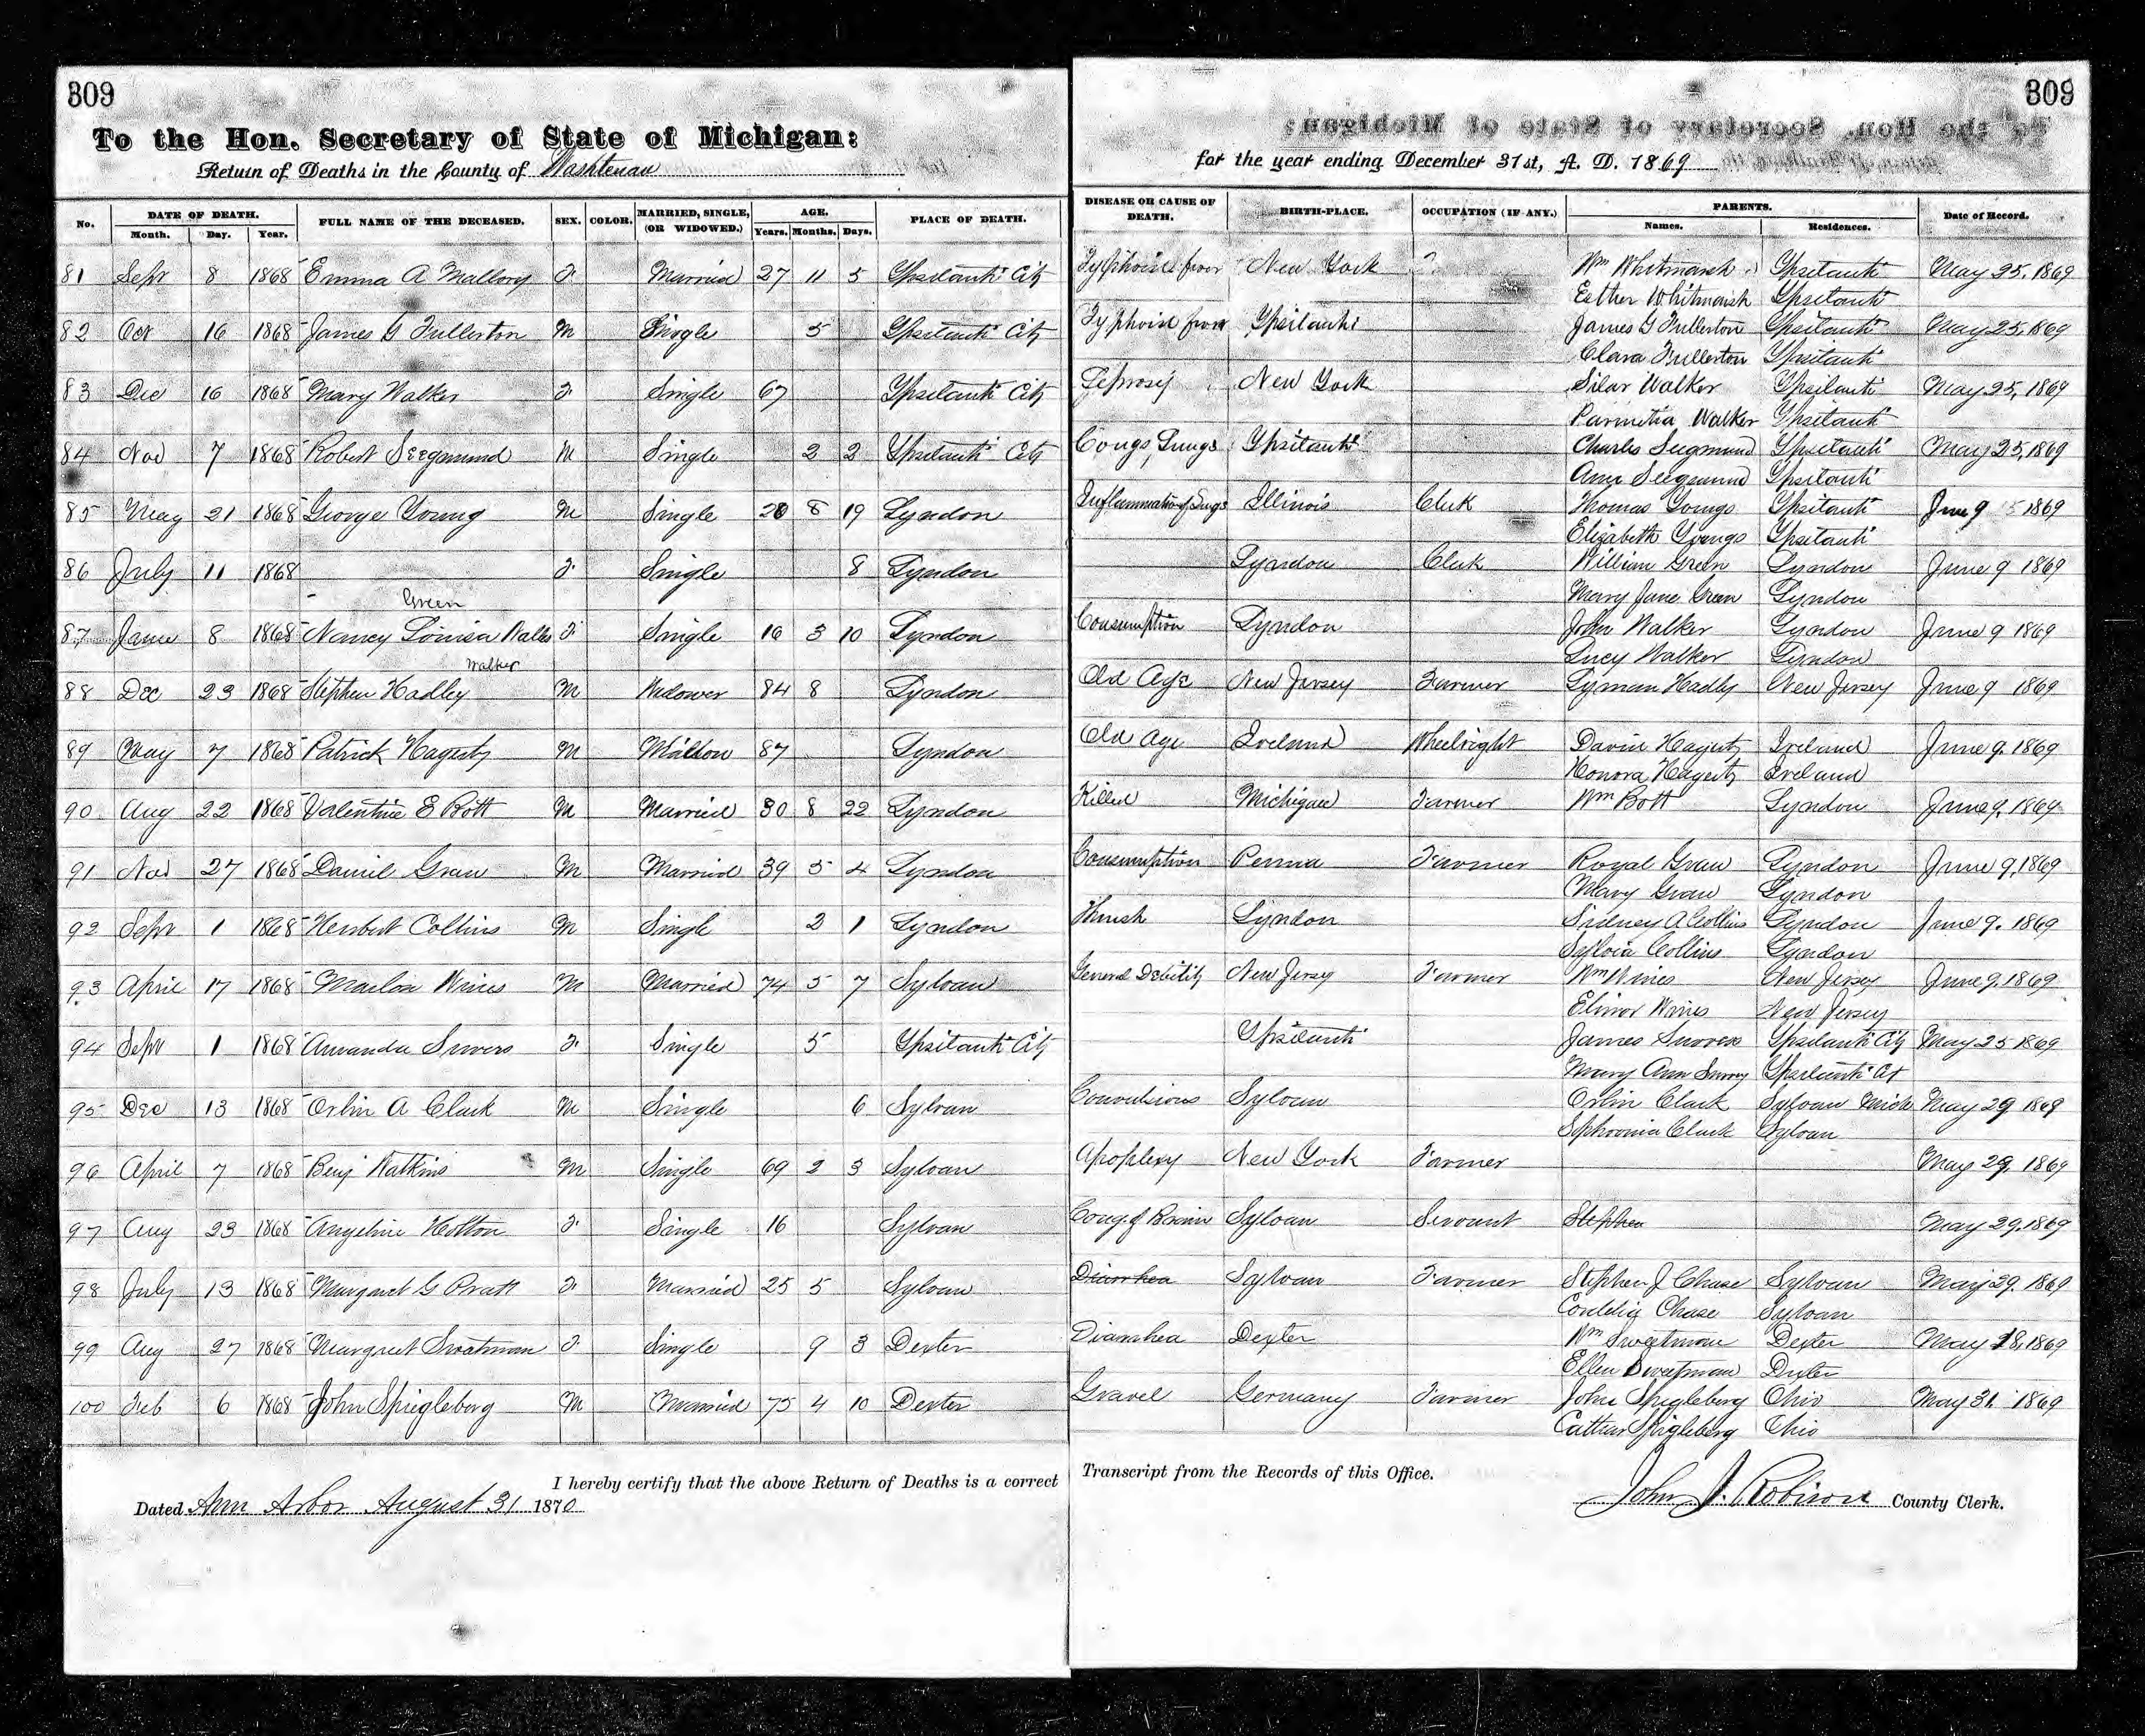 309
To the Hon. Secretary of State of Michigan:
Return of Deaths in the County of Washtenaw
309
for the year ending December 31st, A. D. 1869
No. DATE OF DEATH. FULL NAME OF THE DECEASED. SEX. COLOR. MARRIED, SINGLE, (OR WIDOWED.) AGE. PLACE OF DEATH. DISEASE OR CAUSE OF DEATH. BIRTH-PLACE. OCCUPATION (IF ANY.) PARENTS. Date of Record.
Month. Day. Year. Years. Months. Days. Names. Residences.
81 Sept 8 1868 Emma A Mallory F. Married 27 11 5 Ypsilanti City Typhoid fever New York Wm Whitmarsh Ypsilanti May 25, 1869
Esther Whitmarsh Ypsilanti
82 Oct 16 1868 James G Fullerton M Single 5 Ypsilanti City Typhoid fever Ypsilanti James G Fullerton Ypsilanti May 25, 1869
Clara Fullerton Ypsilanti
83 Dec 16 1868 Mary Walker F. Single 67 Ypsilanti City Leprosy New York Silas Walker Ypsilanti May 25, 1869
Parmetia Walker Ypsilanti
84 Nov 7 1868 Robert Seegmund M Single 2 2 Ypsilanti City Congs, Lungs Ypsilanti Charles Seegmund Ypsilanti May 25, 1869
Ann Seegmund Ypsilanti
85 May 21 1868 George Young M Single 20 8 19 Lyndon Inflammation of Lungs Illinois Clerk Thomas Youngs Ypsilanti June 9 1869
Elizabeth Youngs Ypsilanti
86 July 11 1868 F. Single 8 Lyndon Lyndon Clerk William Green Lyndon June 9 1869
Green Mary Jane Green Lyndon
87 June 8 1868 Nancy Louisa Walker F. Single 16 3 10 Lyndon Consumption Lyndon John Walker Lyndon June 9 1869
Walker Lucy Walker Lyndon
88 Dec 23 1868 Stephen Hadley M Widower 84 8 Lyndon Old Age New Jersey Farmer Lyman Hadly New Jersey June 9 1869
89 May 7 1868 Patrick Hagerty M 87 Lyndon Old Age Ireland Wheelright David Hagerty Ireland June 9. 1869
Honora Hagerty Ireland
90 Aug 22 1868 Valentine E Bott M Married 30 8 22 Lyndon Killed Michigan Farmer Wm Bott Lyndon June 9, 1869
91 Nov 27 1868 Daniel Graw M Married 39 5 4 Lyndon Consumption Penna Farmer Royal Graw Lyndon June 9, 1869
Mary Graw Lyndon
92 Sept 1 1868 Herbert Collins M Single 2 1 Lyndon Thrush Lyndon Sidney A Collins Lyndon June 9. 1869
Sylvia Collins Lyndon
93 April 17 1868 Marlon Wines M Married 74 5 7 Sylvan General Debility New Jersey Farmer Wm Wines New Jersey June 9. 1869
Elinor Wines New Jersey
94 Sept 1 1868 Amanda F. Single 5 Ypsilanti City Ypsilanti James Ypsilanti City May 25 1869
Mary Ann Ypsilanti Ct
95 Dec 13 1868 Orlin A Clark M Single 6 Sylvan Convulsions Sylvan Orlin Clark Sylvan Mich May 29 1869
Sophronia Clark Sylvan
96 April 7 1868 Benj Watkins M Single 69 2 3 Sylvan Apoplexy New York Farmer May 29. 1869
97 Aug 23 1868 Angeline Hotton F. Single 16 Sylvan Cong. of Brain Sylvan Servant Stephen May 29. 1869
98 July 13 1868 Margaret G Pratt F. Married 25 5 Sylvan Diarrhea Sylvan Farmer Stephen J Chase Sylvan May 29. 1869
Chase Sylvan
99 Aug 27 1868 Margreet Sweatman F. Single 9 3 Dexter Diarrhea Dexter Wm Sweetman Dexter May 18, 1869
Ellen Sweetman Dexter
100 Feb 6 1868 John Spiegleberg M Married 75 4 10 Dexter Gravel Germany Farmer John Spigleberg Ohio May 31 1869
Spigleberg Ohio
I hereby certify that the above Return of Deaths is a correct Transcript from the Records of this Office.
Dated Ann Arbor August 31 1870
John J. Robison County Clerk.